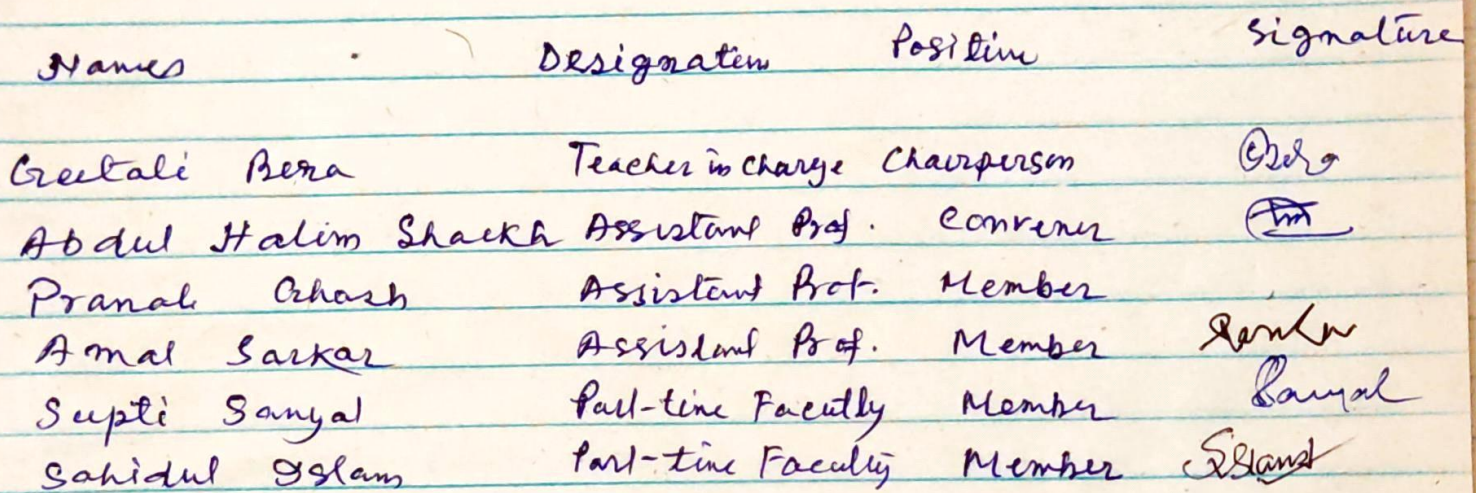 Names Designation Position Signature
Geetali Bera Teacher in charge Chairperson Bera
Abdul Halim Shaikh Assistant Prof. Convener
Pranab Ghosh Assistant Prof. Member
Amal Sarkar Assistant Prof. Member Sarkar
Supti Sanyal Part-time Faculty Member Sanyal
Sahidul Islam Part-time Faculty Member SIslam